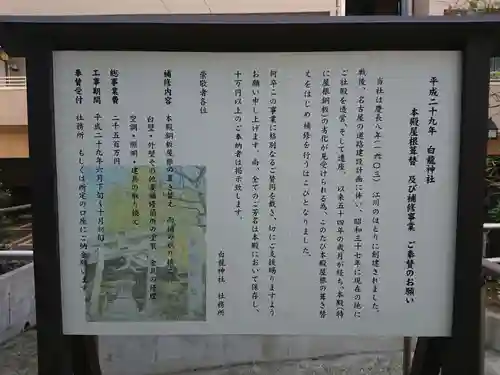 平成二十九年 白龍神社
本殿屋根葺替 及び補修事業 ご奉賛のお願い
当社は慶長八年(一六〇三)江川のほとりに創建されました。
戦後、名古屋の道路建設計画に伴い、昭和三十七年に現在の地に
ご社殿を造営、そして遷座、以来五十四年の歳月が経ち、本殿(特
に屋根銅板)の劣化が見受けられる為、このたび本殿屋根の葺き替
えをはじめ補修を行うはこびとなりました。
何卒この事業に格別なるご賛同を戴き、切にご支援賜りますよう
お願い申し上げます。尚、全てのご芳名は本殿において保存し、
十万円以上のご奉納者は掲示致します。
白龍神社 社務所
崇敬者各位
補修内容 本殿銅板屋根の葺き替え 雨樋の取り換え
白壁・外壁その他要補修箇所の塗装 金具の修理
空調・照明・建具の取り換え
総事業費 二千五百万円
工事期間 平成二十九年六月下旬~十月初旬
奉賛受付 社務所 もしくは所定の口座にご納金願います。